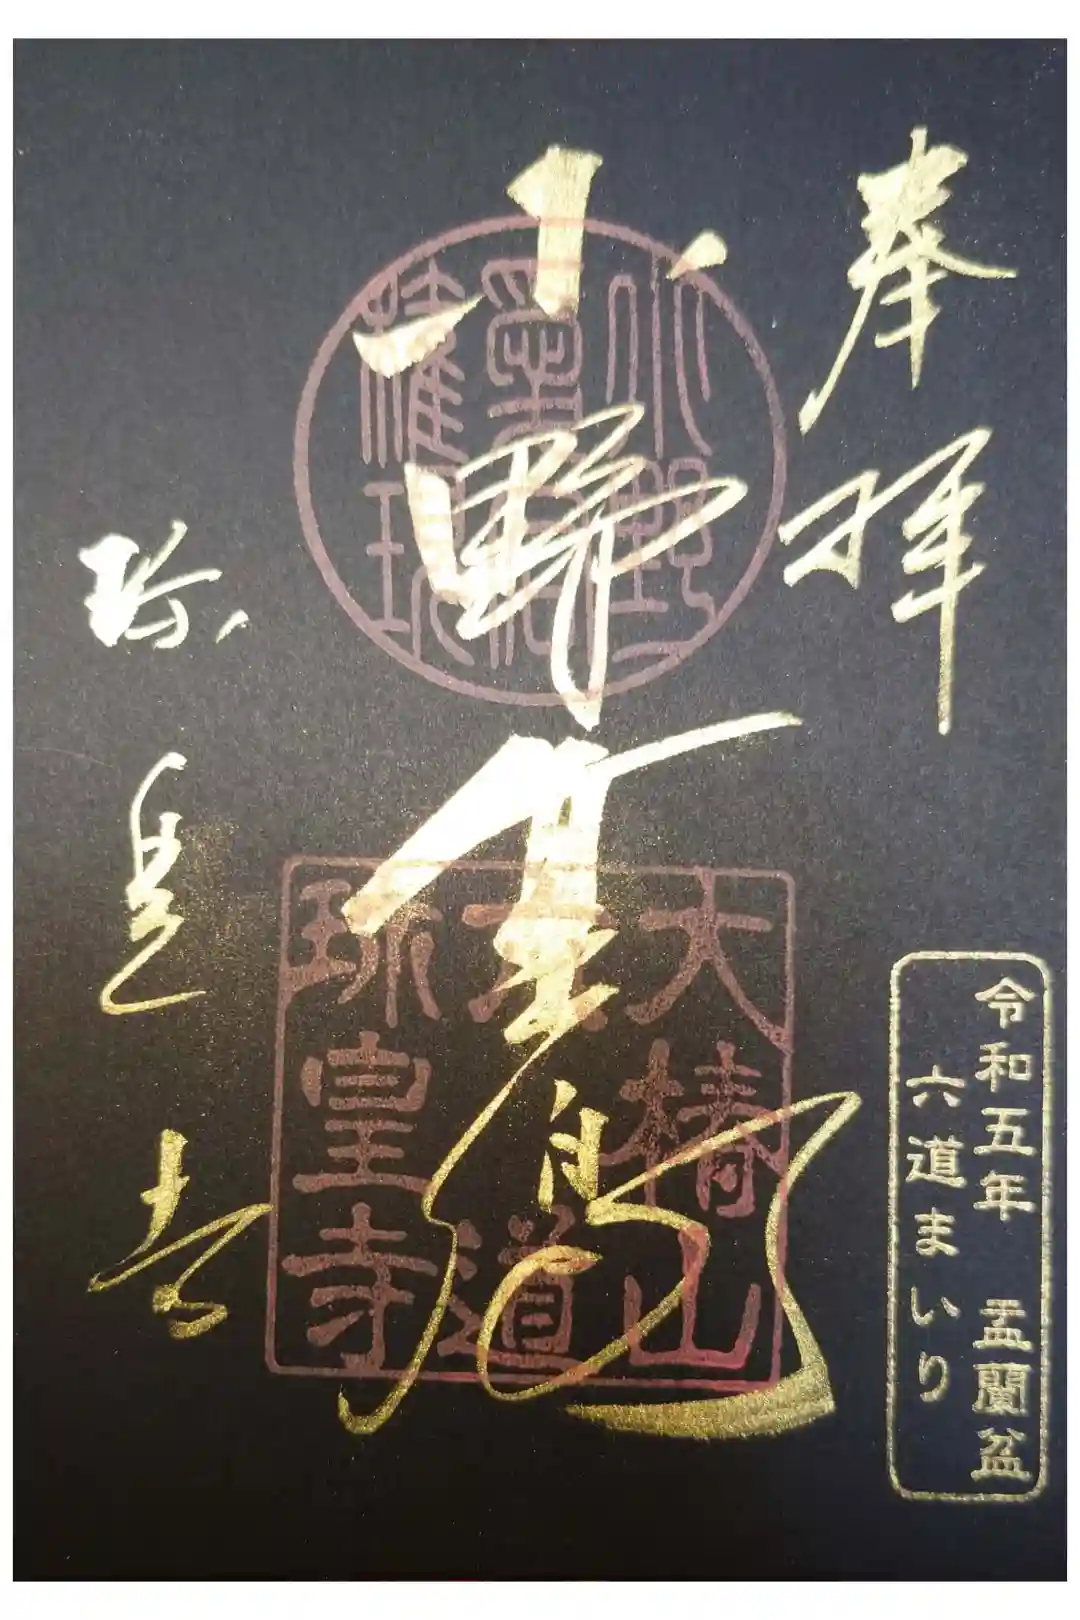 奉拝
小野篁卿
珎皇寺
小野
權現
大椿山
六道
珎皇寺
令和五年 盂蘭盆
六道まいり